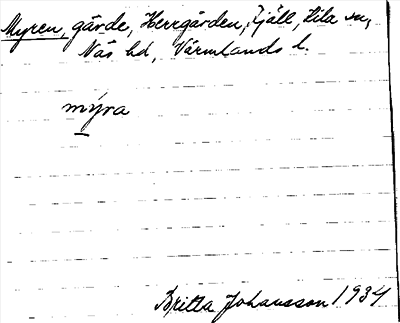 Myren, gärde, Herrgården, Fjäll, Kila sn,
Näs hd, Värmlands l.
mýra
Britta Johansson 1934